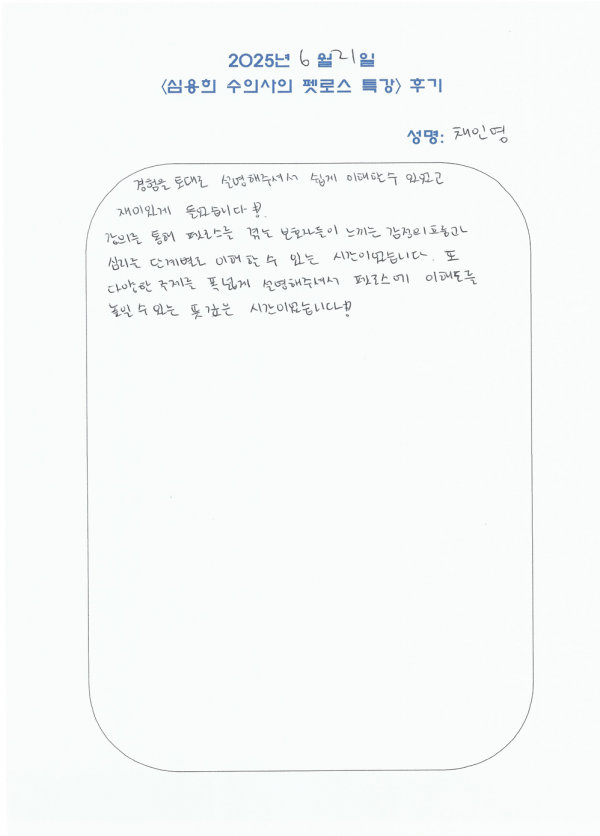 2025년 6월 21일
<심용희 수의사의 펫로스 특강> 후기
성명: 채인영
경험을 토대로 설명해주셔서 쉽게 이해할 수 있었고
재미있게 들었습니다!!
강의를 통해 펫로스를 겪는 보호자들이 느끼는 감정의 흐름과
심리를 단계별로 이해할 수 있는 시간이었습니다. 또
다양한 주제를 폭넓게 설명해주셔서 펫로스에 이해도를
높일 수 있는 뜻깊은 시간이었습니다!!